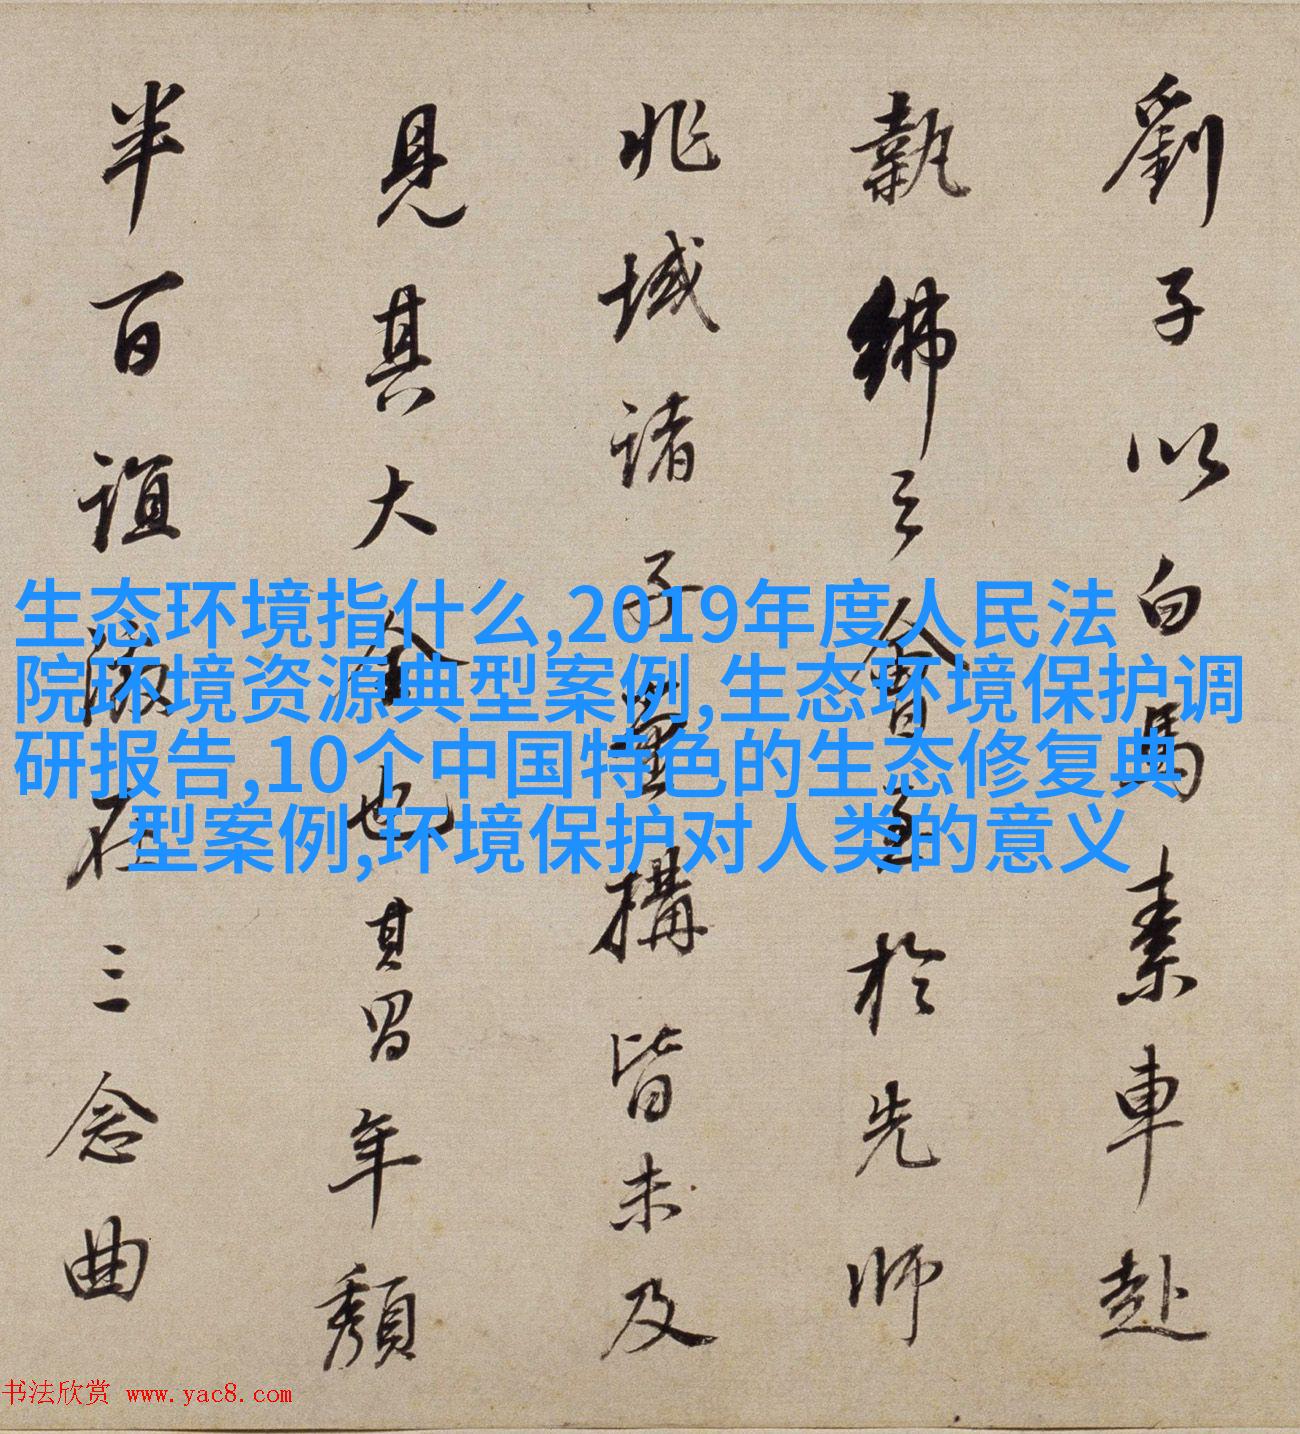 劉子以白馬素車赴
執紼之會重於先師
兆域諸子董構皆未及
見其大全也其習年頽
半百誼激在三念曲
生态环境指什么,2019年度人民法
院环境资源典型案例,生态环境保护调
研报告,10个中国特色的生态修复典
型案例,环境保护对人类的意义
书法欣赏 www.yac8.com